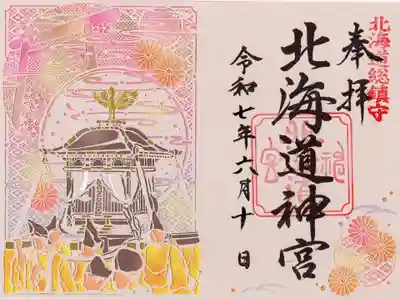 北海道総鎮守
奉拝
北海道神宮
令和七年六月十日